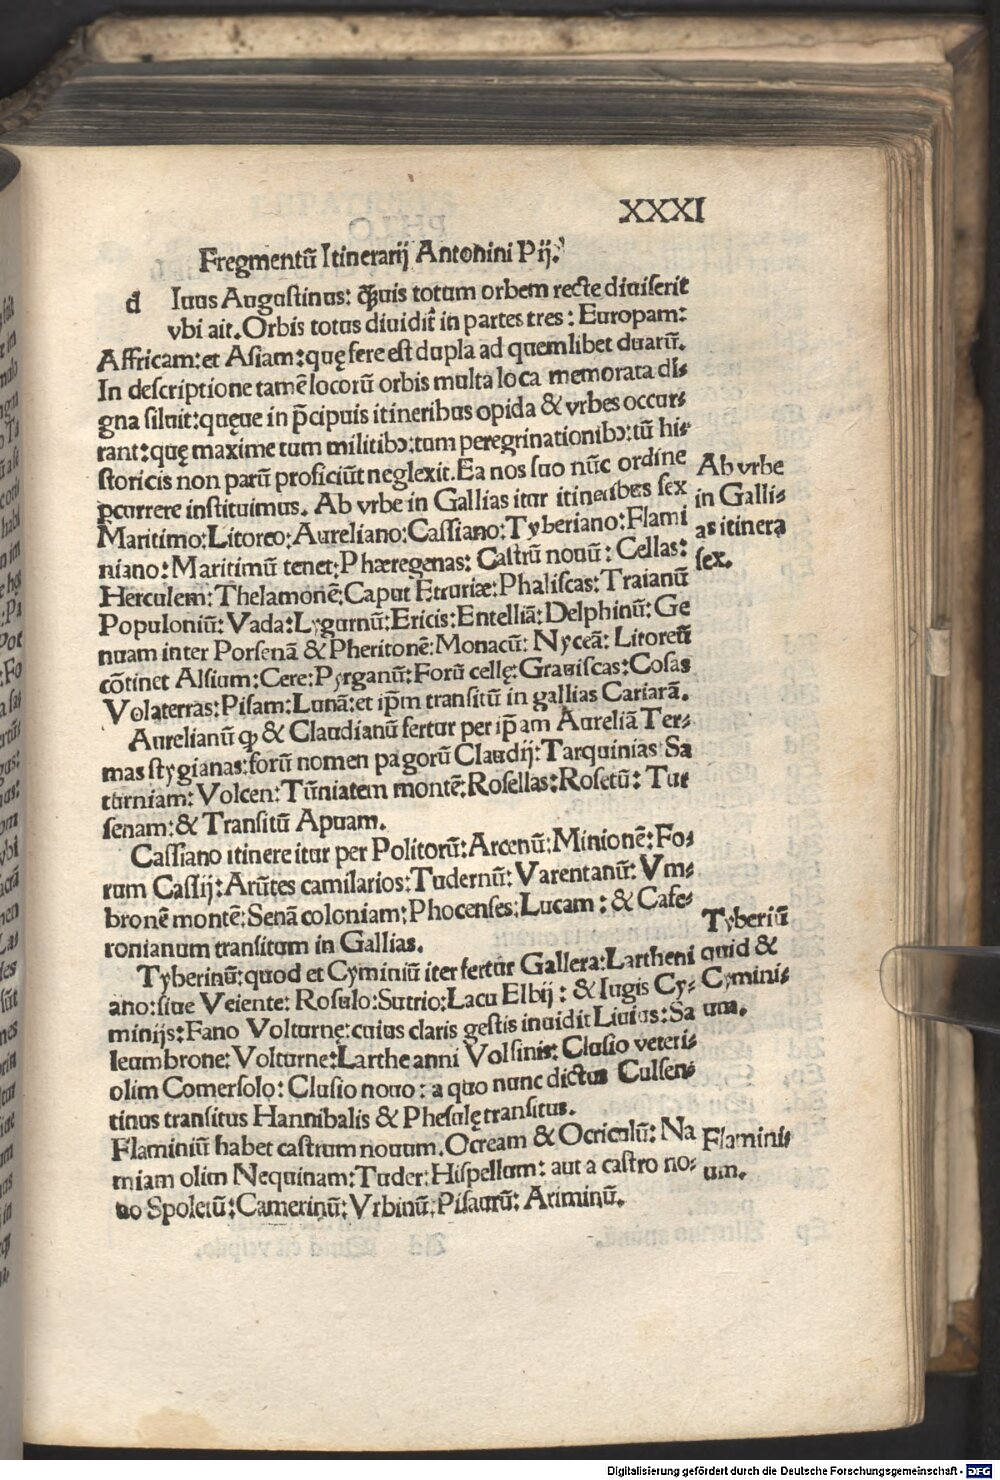 XXXI
Fregmentū Itinerarij Antonini Pij.
d Iuus Augustinus: q̄ȝuis totum orbem recte diuiserit
vbi ait. Orbis totus diuidit̄ in partes tres: Europam:
Affricam: et Asiam: quę fere est dupla ad quemlibet duarū.
In descriptione tamē locorū orbis multa loca memorata di⸗
gna siluit: quęue in p̄cipuis itineribus opida & vrbes occur⸗
rant: quę maxime tum militibꝰ: tum peregrinationibꝰ: tū hi⸗
storicis non parū proficiūt neglexit. Ea nos suo nūc ordine
ꝑcurrere instituimus. Ab vrbe in Gallias itur itineribus sex
Maritimo: Litoreo: Aureliano: Cassiano: Tyberiano: Flami
niano: Maritimū tenet: Phæregenas: Castrū nouū: Cellas:
Herculem: Thelamonē: Caput Etruriæ: Phaliscas: Traianū
Populoniū: Vada: Lygurnū: Ericis: Entelliā: Delphinū: Ge
nuam inter Porsenā & Pheritonē: Monacū: Nyceā: Litoreū
cōtinet Alsium: Cere: Pyrganū: Forū cellę: Grauiscas: Cosas
Volaterras: Pisam: Lunā: et ip̄m transitū in gallias Cariarā.
Aurelianū ꝙ & Claudianū fertur per ip̄am Aureliā Ter⸗
mas stygianas: forū nomen pagorū Claudij: Tarquinias Sa
turniam: Volcen: Tūniatem montē: Rosellas: Rosetū: Tur
senam: & Transitū Apuam.
Cassiano itinere itur per Politorū: Arcenū: Minionē: Fo⸗
rum Cassij: Arūtes camilarios: Tudernū: Varentanū: Vm⸗
bronē montē: Senā coloniam: Phocenses: Lucam: & Cafe⸗
ronianum transitum in Gallias.
Tyberinū: quod et Cyminiū iter fertur Gallera: Lartheni
ano: siue Veiente: Rosulo: Sutrio: Lacu Elbij: & Iugis Cy⸗
minijs: Fano Volturnę: cuius claris gestis inuidit Liuius: Sa
leumbrone: Volturne: Lartheanni Volsinis: Clusio veteri⸗
olim Comersolo: Clusio nouo: a quo nunc dictus Culsen⸗
tinus transitus Hannibalis & Phesulę transitus.
Flaminiū habet castrum nouum. Ocream & Ocriculū: Na
rniam olim Nequinam: Tuder: Hispellum: aut a castro no⸗
uo Spoletū: Camerinū: Vrbinū: Pisaurū: Ariminū.
Ab vrbe
in Galli⸗
as itinera
sex.
Tyberiū
quid &
Cymini⸗
um.
Flamini⸗
um.
Digitalisierung gefördert durch die Deutsche Forschungsgemeinschaft - DFG